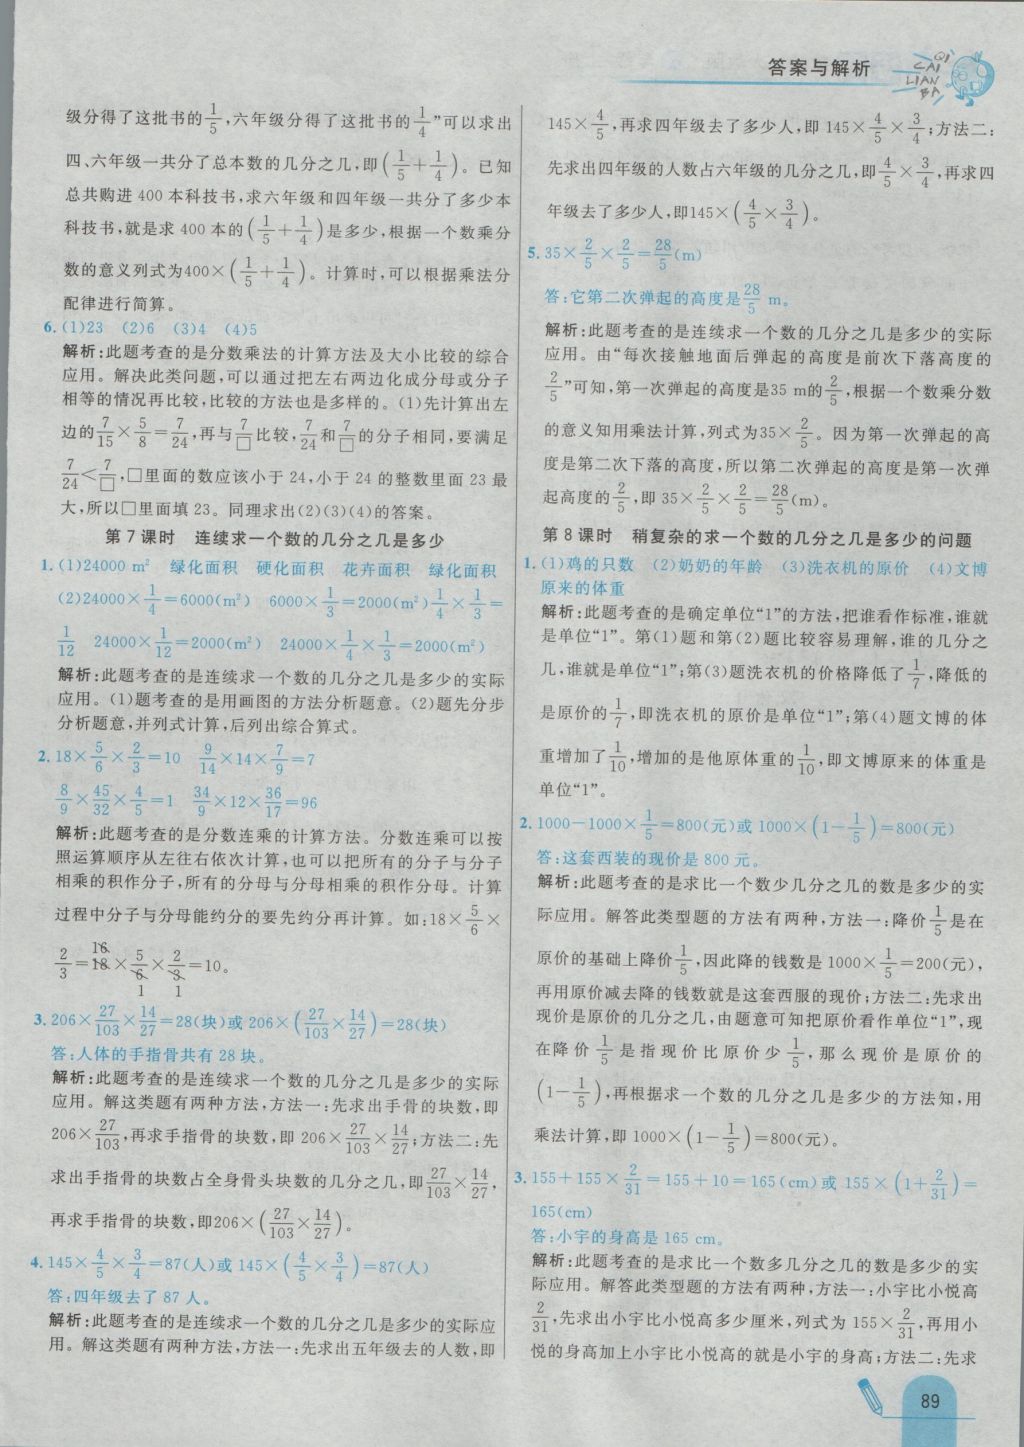 答案与解析
QI
CAI
LIAN
BA
级分得了这批书的1/5,六年级分得了这批书的1/4”可以求出
四、六年级一共分了总本数的几分之几,即(1/5+1/4)。已知
总共购进400本科技书,求六年级和四年级一共分了多少本
科技书,就是求400本的(1/5+1/4)是多少,根据一个数乘分
数的意义列式为400×(1/5+1/4)。计算时,可以根据乘法分
配律进行简算。
6.(1)23 (2)6 (3)4 (4)5
解析:此题考查的是分数乘法的计算方法及大小比较的综合
应用。解决此类问题,可以通过把左右两边化成分母或分子
相等的情况再比较,比较的方法也是多样的。(1)先计算出左
边的7/15×5/8=7/24,再与7/□比较,7/24和7/□的分子相同,要满足
7/24<7/□,□里面的数应该小于24,小于24的整数里面23最
大,所以□里面填23。同理求出(2)(3)(4)的答案。
第7课时 连续求一个数的几分之几是多少
1.(1)24000 m² 绿化面积 硬化面积 花卉面积 绿化面积
(2)24000×1/4=6000(m²) 6000×1/3=2000(m²) 1/4×1/3=
1/12 24000×1/12=2000(m²) 24000×1/4×1/3=2000(m²)
解析:此题考查的是连续求一个数的几分之几是多少的实际
应用。(1)题考查的是用画图的方法分析题意。(2)题先分步
分析题意,并列式计算,后列出综合算式。
2.18×5/6×2/3=10 9/14×14×7/9=7
8/9×45/32×4/5=1 34/9×12×36/17=96
解析:此题考查的是分数连乘的计算方法。分数连乘可以按
照运算顺序从左往右依次计算,也可以把所有的分子与分子
相乘的积作分子,所有的分母与分母相乘的积作分母。计算
过程中分子与分母能约分的要先约分再计算。如:18×5/6×
2/3=18×5/6×2/3=10。
3.206×27/103×14/27=28(块)或206×(27/103×14/27)=28(块)
答:人体的手指骨共有28块。
解析:此题考查的是连续求一个数的几分之几是多少的实际
应用。解这类题有两种方法,方法一:先求出手骨的块数,即
206×27/103,再求手指骨的块数,即206×27/103×14/27;方法二:先
求出手指骨的块数占全身骨头块数的几分之几,即27/103×14/27,
再求手指骨的块数,即206×(27/103×14/27)。
4.145×4/5×3/4=87(人)或145×(4/5×3/4)=87(人)
答:四年级去了87人。
解析:此题考查的是连续求一个数的几分之几是多少的实际应
用。解这类题有两种方法,方法一:先求出五年级去的人数,即
145×4/5,再求四年级去了多少人,即145×4/5×3/4;方法二:
先求出四年级的人数占六年级的几分之几,即4/5×3/4,再求四
年级去了多少人,即145×(4/5×3/4)。
5.35×2/5×2/5=28/5(m)
答:它第二次弹起的高度是28/5 m。
解析:此题考查的是连续求一个数的几分之几是多少的实际
应用。由“每次接触地面后弹起的高度是前次下落高度的
2/5”可知,第一次弹起的高度是35 m的2/5,根据一个数乘分数
的意义知用乘法计算,列式为35×2/5。因为第一次弹起的高
度是第二次下落的高度,所以第二次弹起的高度是第一次弹
起高度的2/5,即35×2/5×2/5=28/5(m)。
第8课时 稍复杂的求一个数的几分之几是多少的问题
1.(1)鸡的只数 (2)奶奶的年龄 (3)洗衣机的原价 (4)文博
原来的体重
解析:此题考查的是确定单位“1”的方法,把谁看作标准,谁就
是单位“1”。第(1)题和第(2)题比较容易理解,谁的几分之
几,谁就是单位“1”;第(3)题洗衣机的价格降低了1/7,降低的
是原价的1/7,即洗衣机的原价是单位“1”;第(4)题文博的体
重增加了1/10,增加的是他原体重的1/10,即文博原来的体重是
单位“1”。
2.1000-1000×1/5=800(元)或1000×(1-1/5)=800(元)
答:这套西装的现价是800元。
解析:此题考查的是求比一个数少几分之几的数是多少的实
际应用。解答此类型题的方法有两种,方法一:降价1/5是在
原价的基础上降价1/5,因此降的钱数是1000×1/5=200(元),
再用原价减去降的钱数就是这套西服的现价;方法二:先求出
现价是原价的几分之几,由题意可知把原价看作单位“1”,现
在降价1/5是指现价比原价少1/5,那么现价是原价的
(1-1/5),再根据求一个数的几分之几是多少的方法知,用
乘法计算,即1000×(1-1/5)=800(元)。
3.155+155×2/31=155+10=165(cm)或155×(1+2/31)=
165(cm)
答:小宇的身高是165 cm。
解析:此题考查的是求比一个数多几分之几的数是多少的实
际应用。解答此类型题的方法有两种,方法一:小宇比小悦高
2/31,先求出小宇比小悦高多少厘米,列式为155×2/31,再用小
悦的身高加上小宇比小悦高的就是小宇的身高;方法二:先求
89